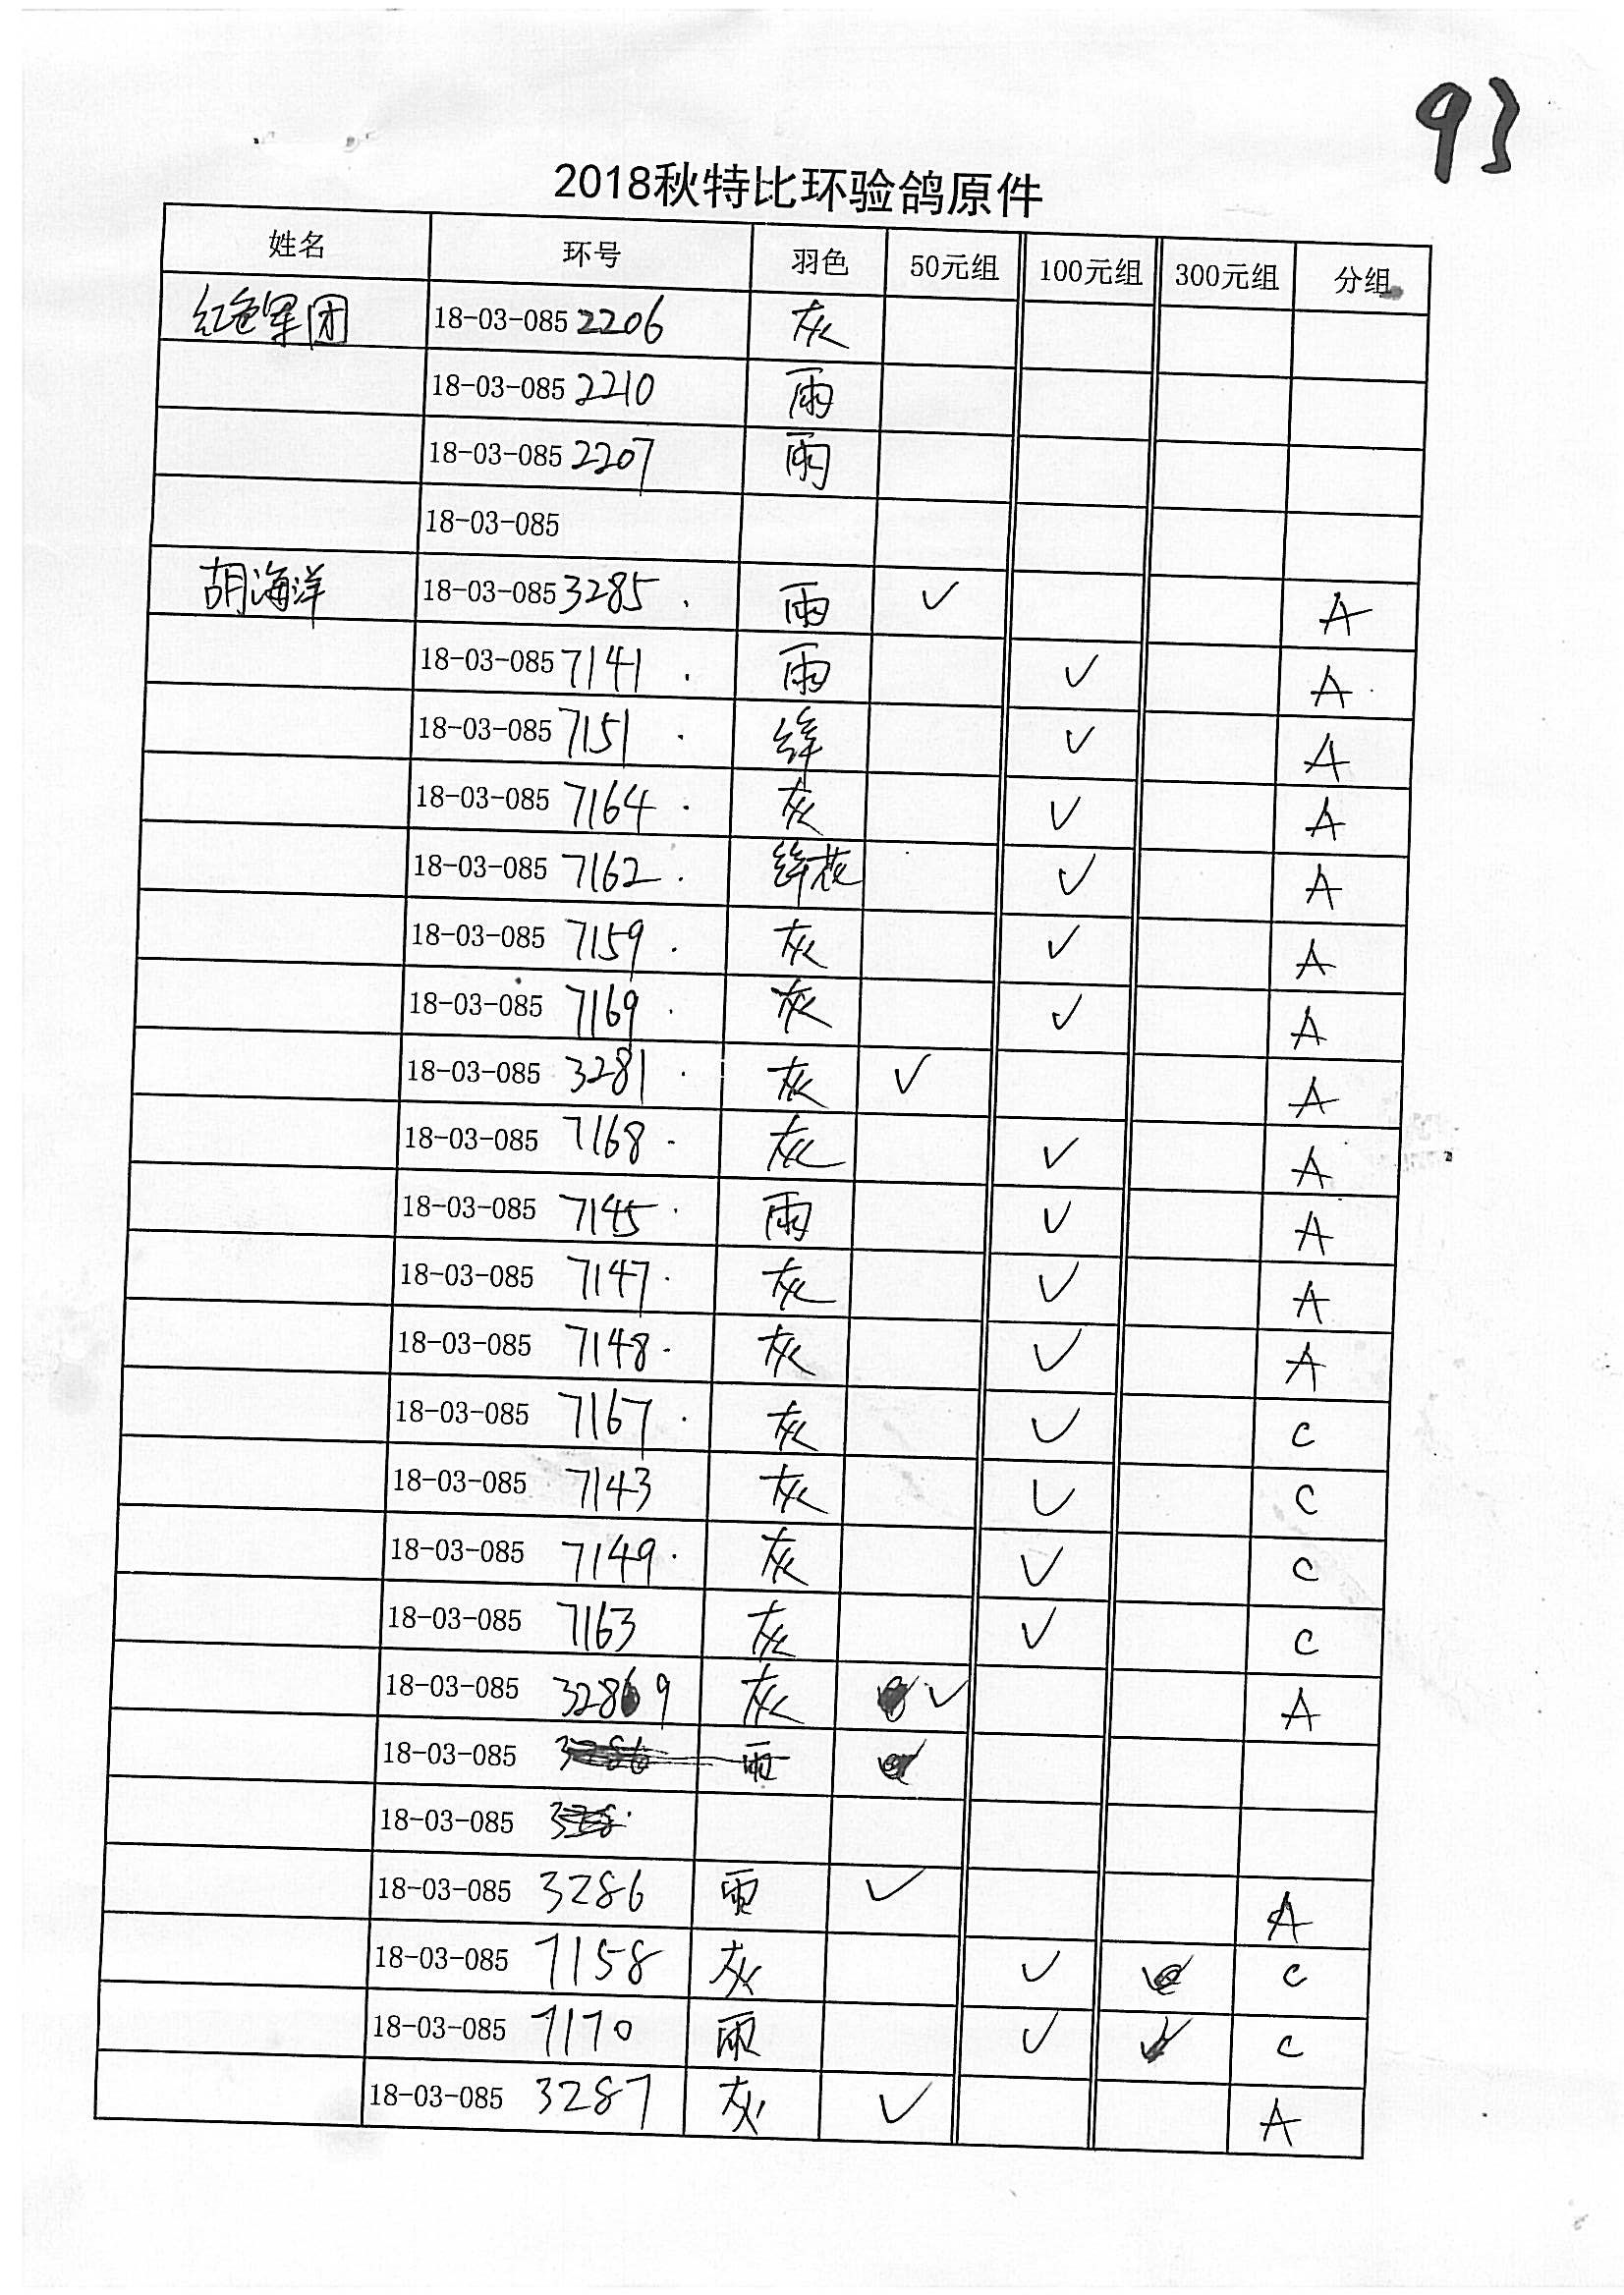 93
2018秋特比环验鸽原件
姓名 环号 羽色 50元组 100元组 300元组 分组
红色军团 18-03-085 2206 灰
18-03-085 2210 雨
18-03-085 2207 雨
18-03-085
胡海洋 18-03-085 3285 . 雨 ✓ A
18-03-085 7141 . 雨 ✓ A
18-03-085 7151 . 绛 ✓ A
18-03-085 7164 . 灰 ✓ A
18-03-085 7162 . 绛花 ✓ A
18-03-085 7159 . 灰 ✓ A
18-03-085 7169 . 灰 ✓ A
18-03-085 3281 . 灰 ✓ A
18-03-085 7168 . 灰 ✓ A
18-03-085 7145 . 雨 ✓ A
18-03-085 7147 . 灰 ✓ A
18-03-085 7148 . 灰 ✓ A
18-03-085 7167 . 灰 ✓ C
18-03-085 7143 灰 ✓ C
18-03-085 7149 . 灰 ✓ C
18-03-085 7163 灰 ✓ C
18-03-085 3289 灰 ✓ A
18-03-085 3286 雨
18-03-085
18-03-085 3286 雨 ✓ A
18-03-085 7158 灰 ✓ C
18-03-085 7170 雨 ✓ C
18-03-085 3287 灰 ✓ A